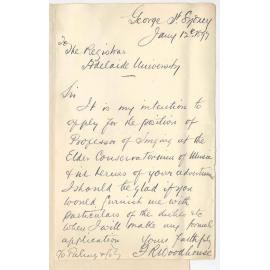 George St Sydney
Jany 12th 1897
To
The Registrar
Adelaide University
Sir
It is my intention to
apply for the position of
Professor of Singing at the
Elder Conservatorium of Music
& in terms of your advertisement
I should be glad if you
would furnish me with
particulars of the duties etc
when I will make my formal
application
Yours faithfully
Woodhouse